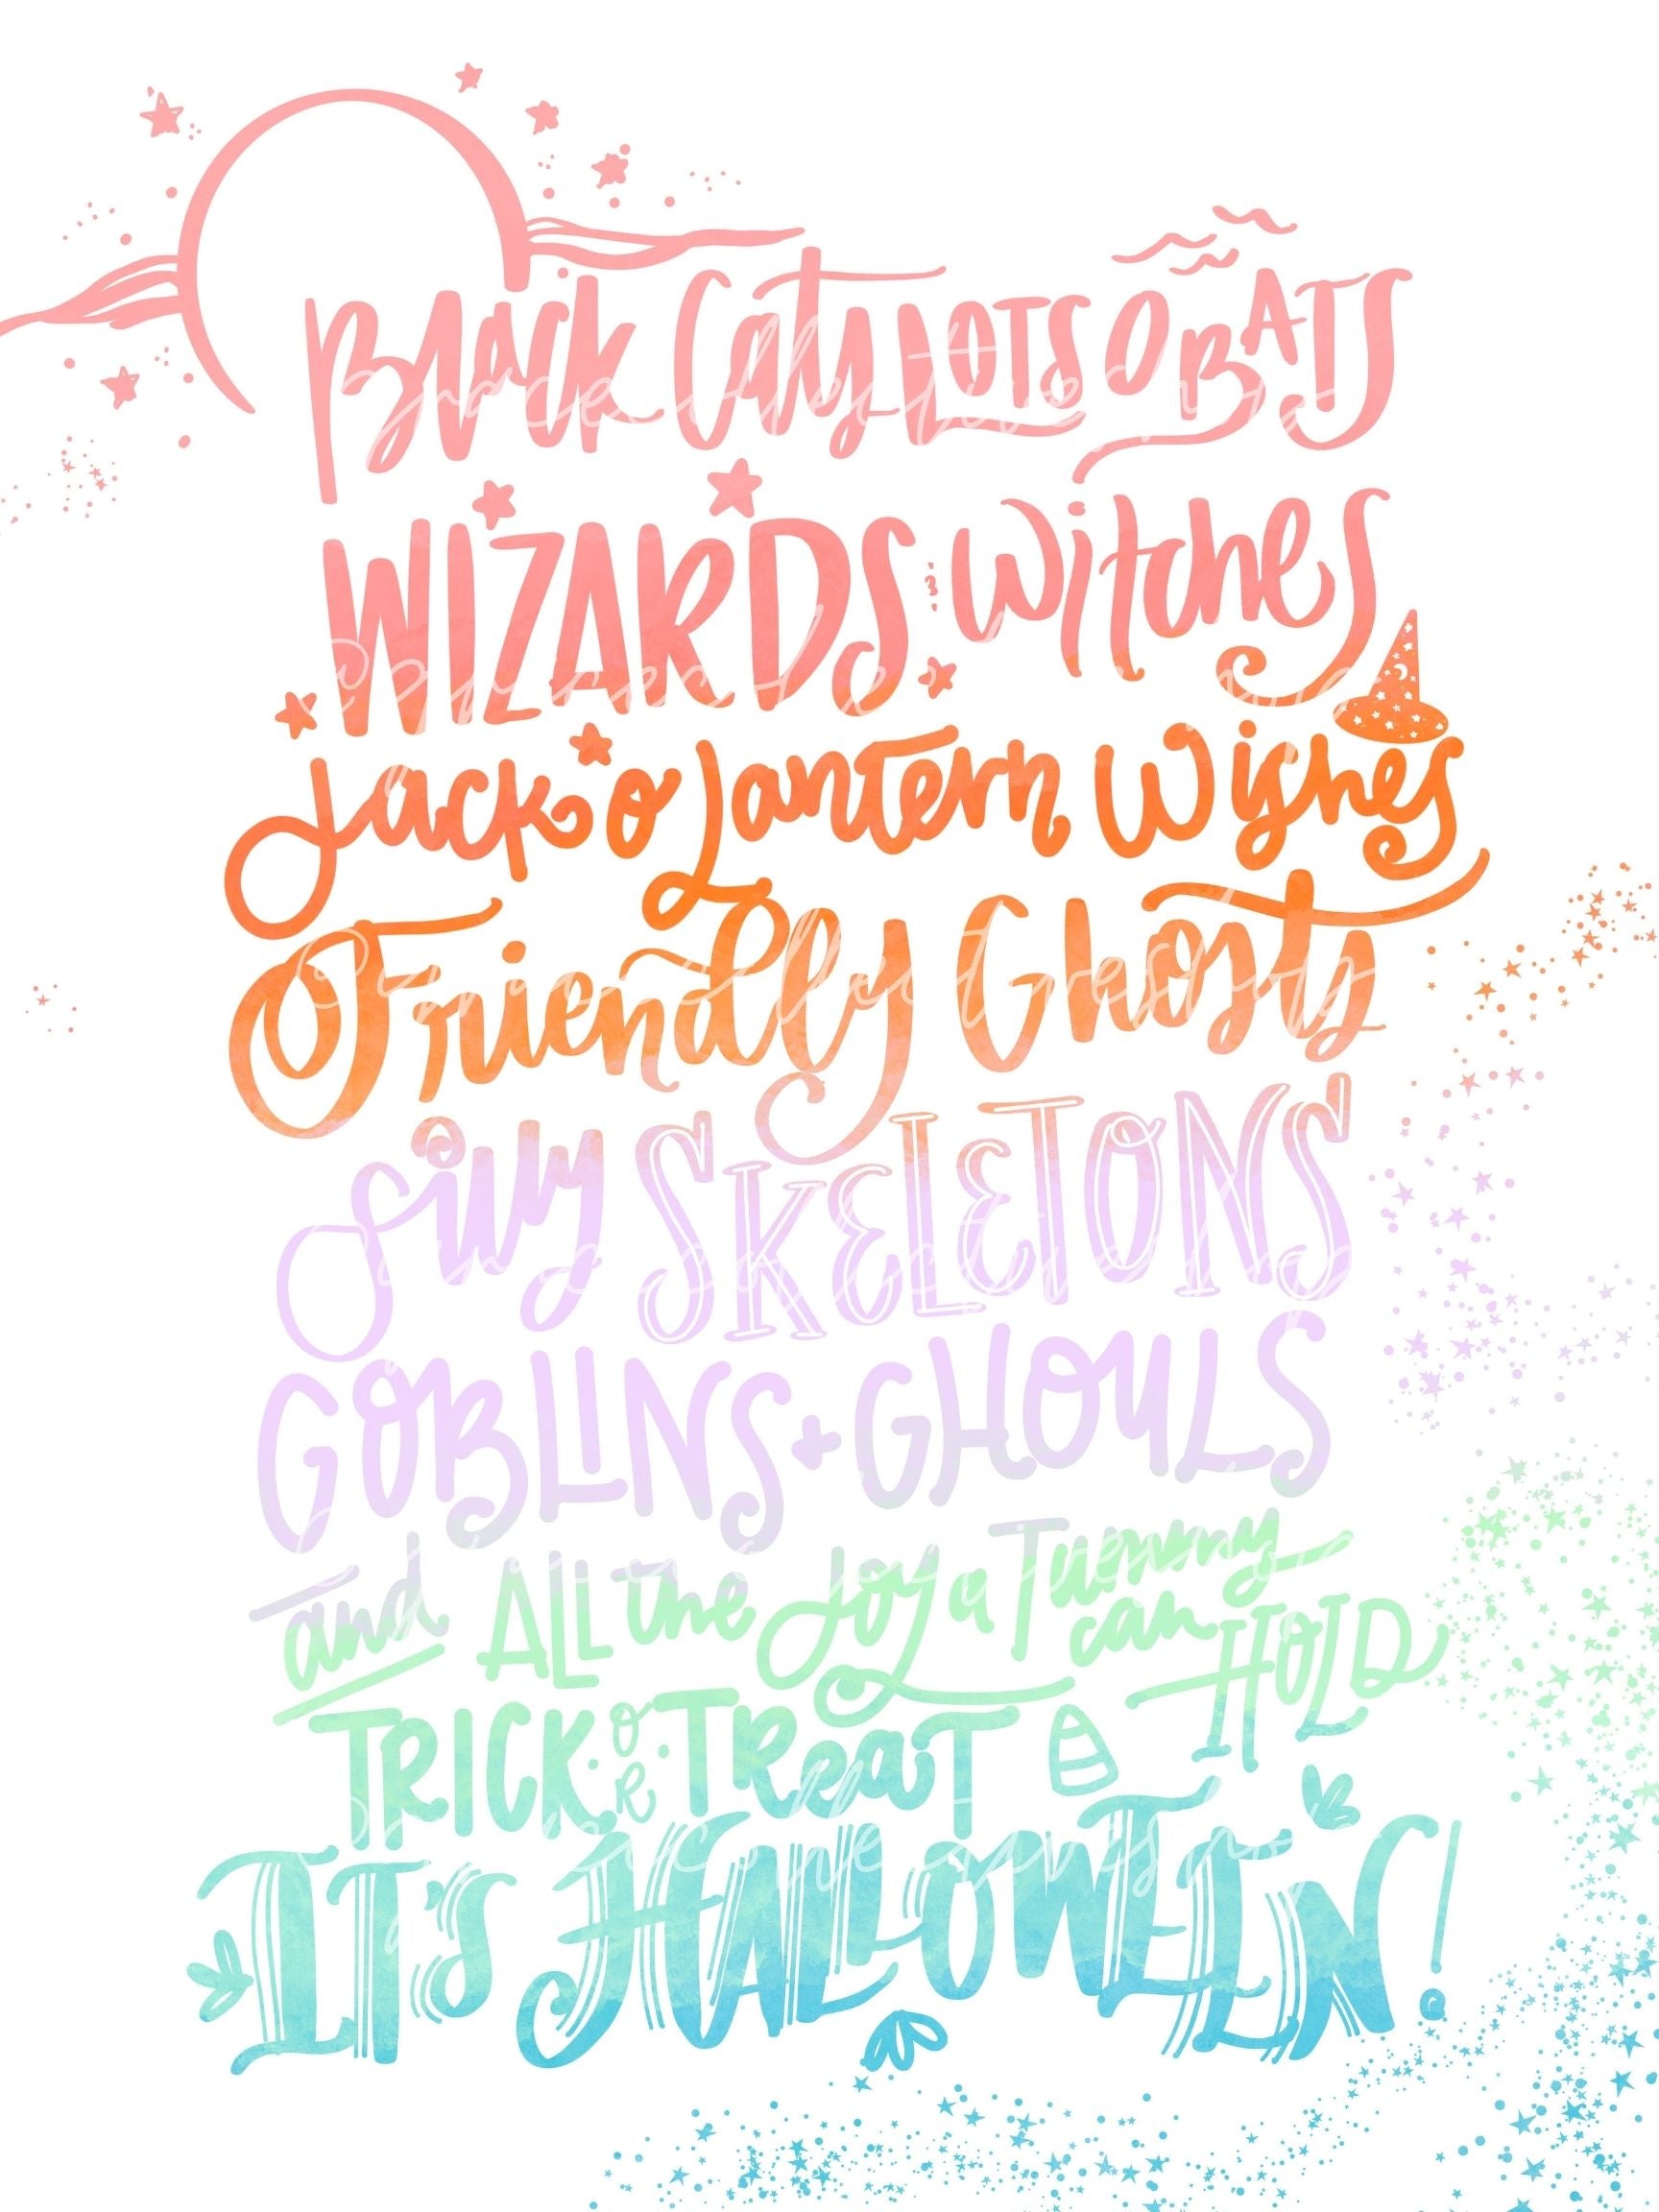 Black Cats LOTS O BATS
WIZARDS & witches
Jack o Lantern Wishes
Friendly Ghosts
Silly SKELETONS
GOBLINS + GHOULS
and ALL the Joy a Tummy can HOLD
TRICK OR TReaT
IT's HALLOWEEN!